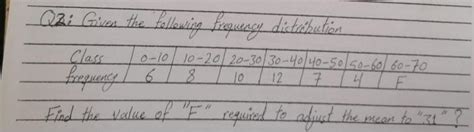 Q2: Given the following frequency distribution
Class 0-10 10-20 20-30 30-40 40-50 50-60 60-70
frequency 6 8 10 12 7 4 F
Find the value of "F" required to adjust the mean to "31" ?